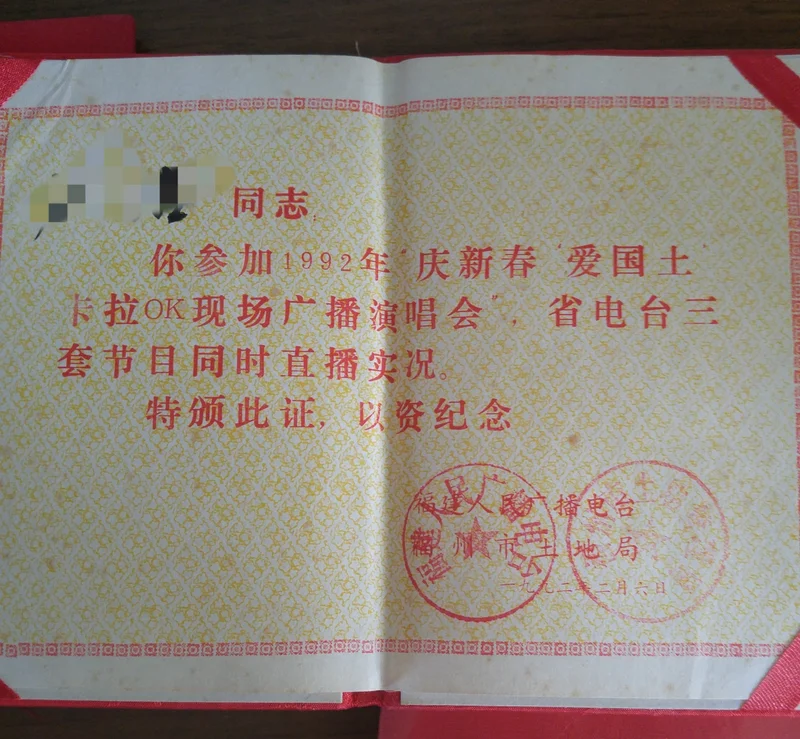 同志:
你参加1992年“庆新春‘爱国土’
卡拉OK现场广播演唱会”，省电台三
套节目同时直播实况。
特颁此证，以资纪念
福建人民广播电台
福州市土地局
一九九二年二月六日
福建人民广播电台